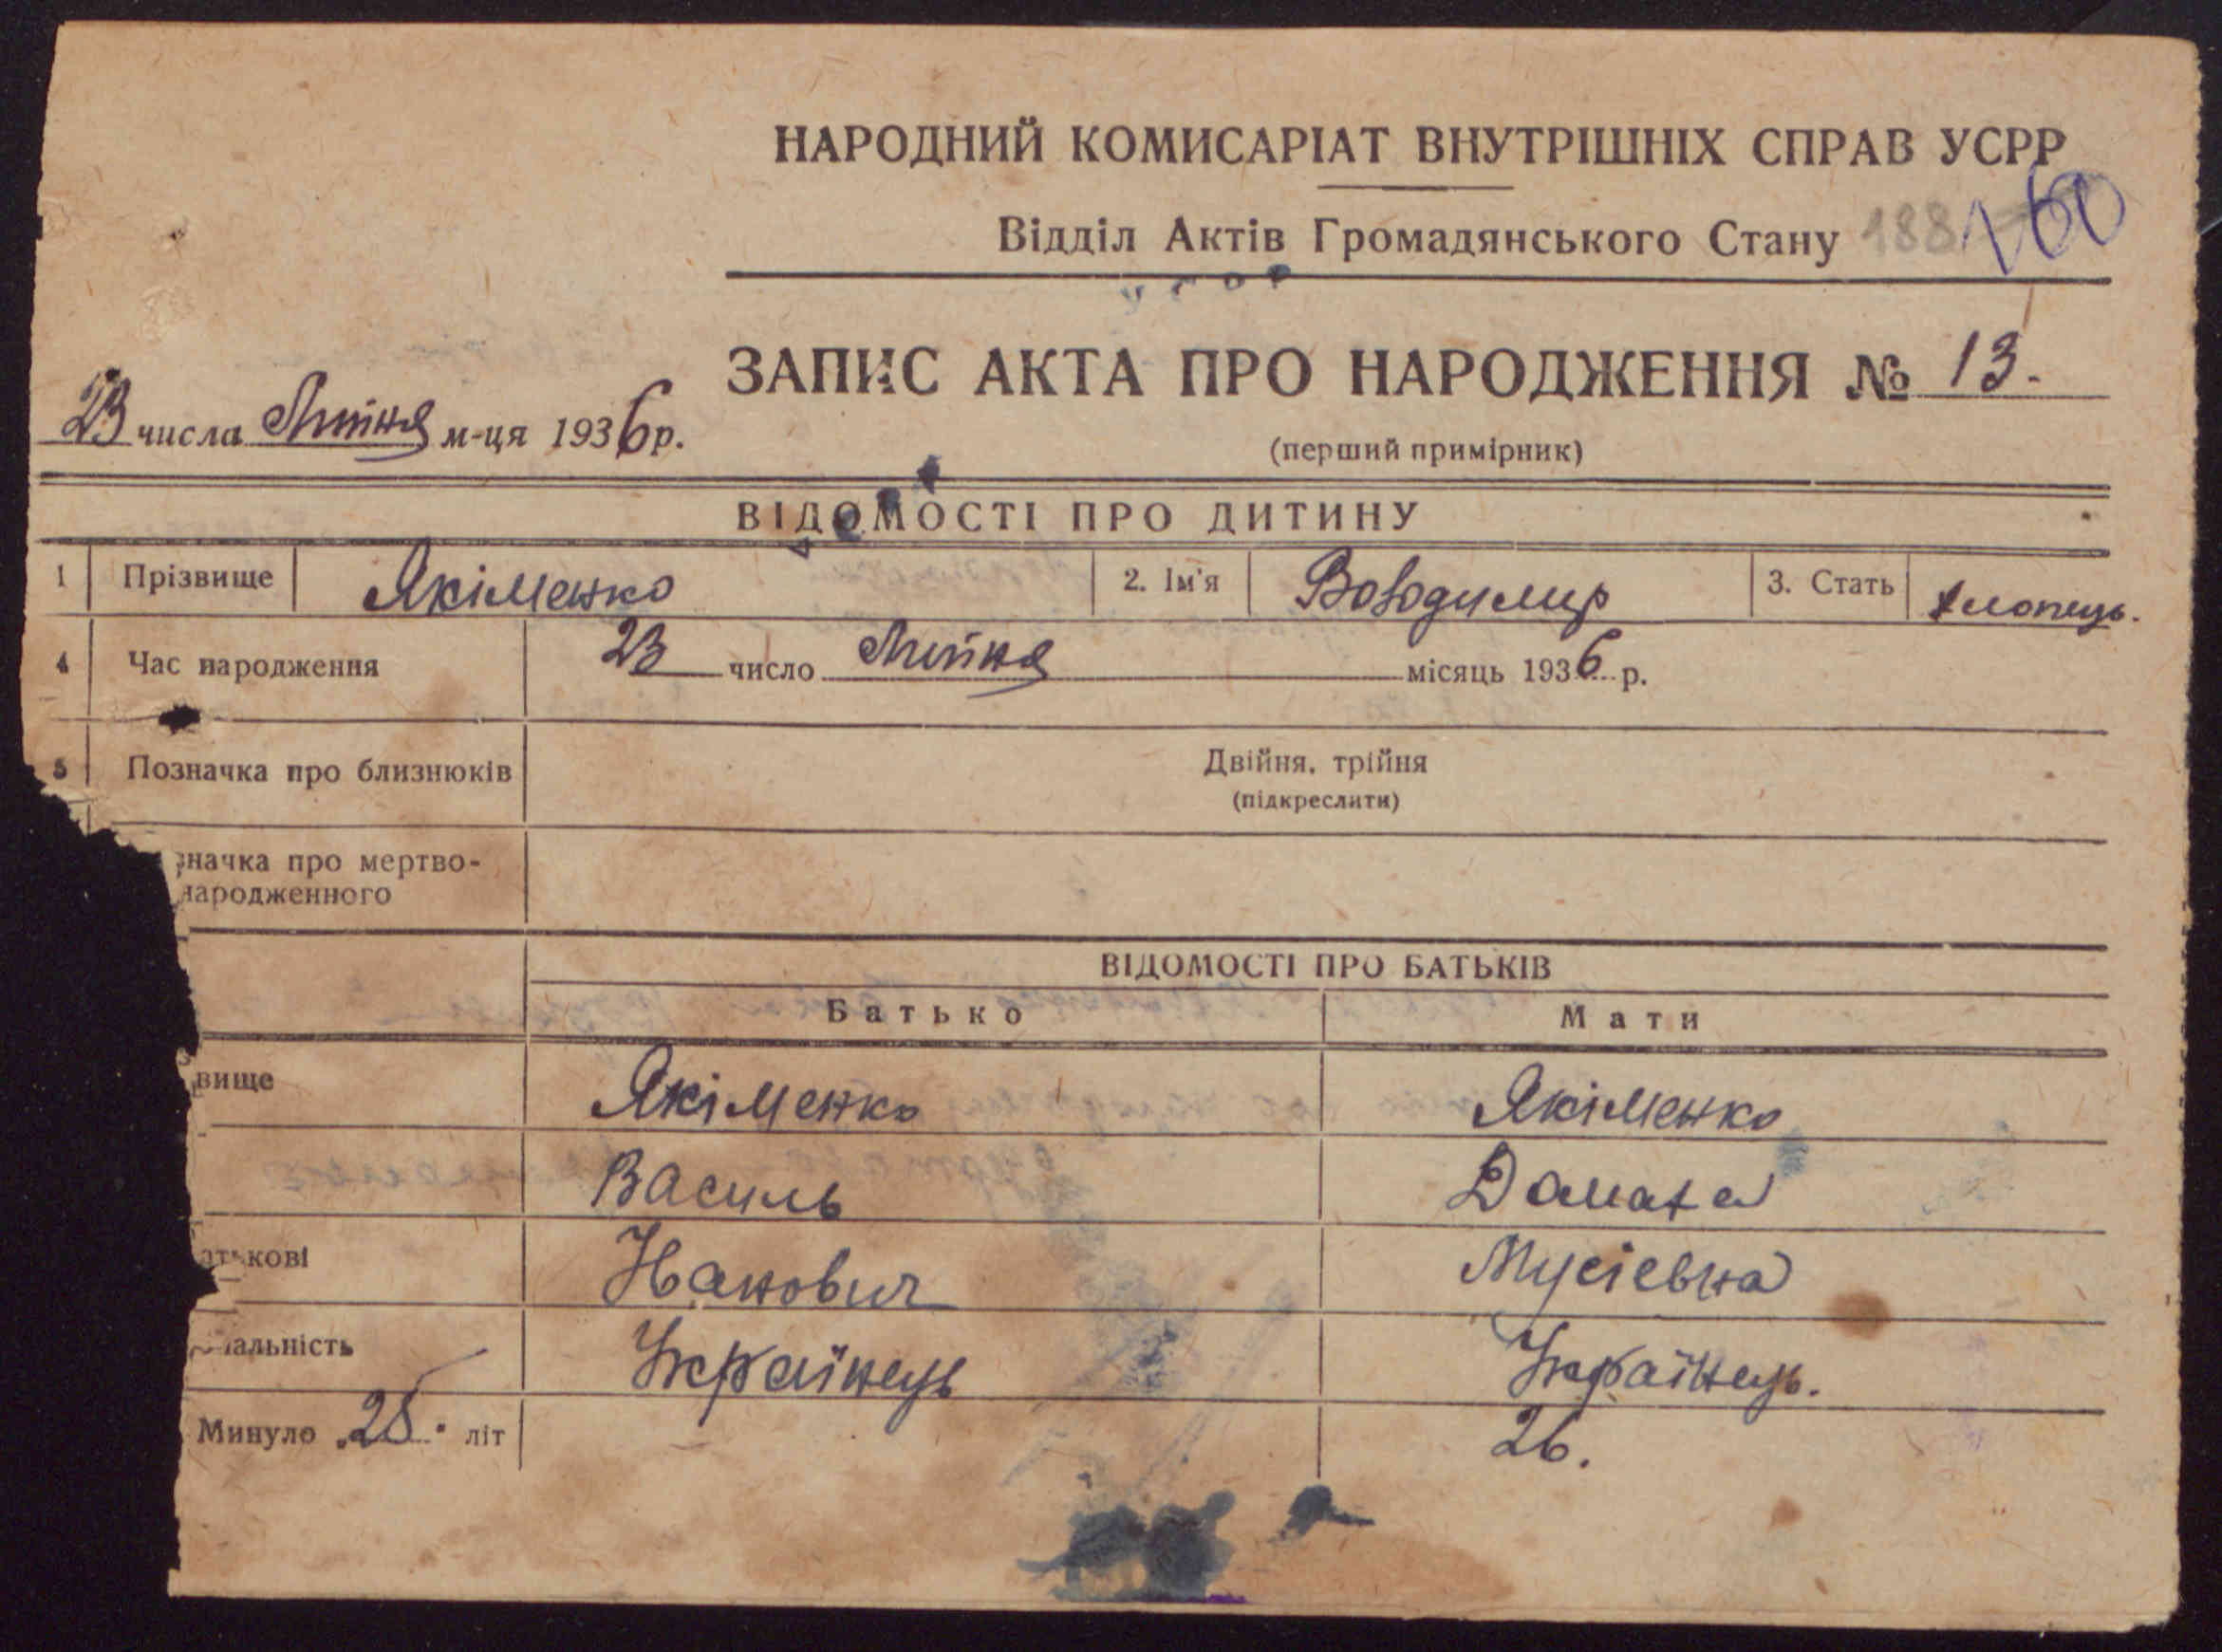 НАРОДНИЙ КОМИСАРІАТ ВНУТРІШНІХ СПРАВ УСРР
Відділ Актів Громадянського Стану 188 160
ЗАПИС АКТА ПРО НАРОДЖЕННЯ № 13.
23 числа Липня м-ця 1936 р.
(перший примірник)
ВІДОМОСТІ ПРО ДИТИНУ
1 Прізвище Якіменко 2. Ім'я Володимир 3. Стать хлопець.
4 Час народження 23 число Липня місяць 1936 р.
5 Позначка про близнюків Двійня, трійня
(підкреслити)
значка про мертво-
народженного
ВІДОМОСТІ ПРО БАТЬКІВ
Батько Мати
звище Якіменко Якіменко
Василь
атькові Іванович Мусіевна
альність Українець Українець.
Минуло 28. літ 26.